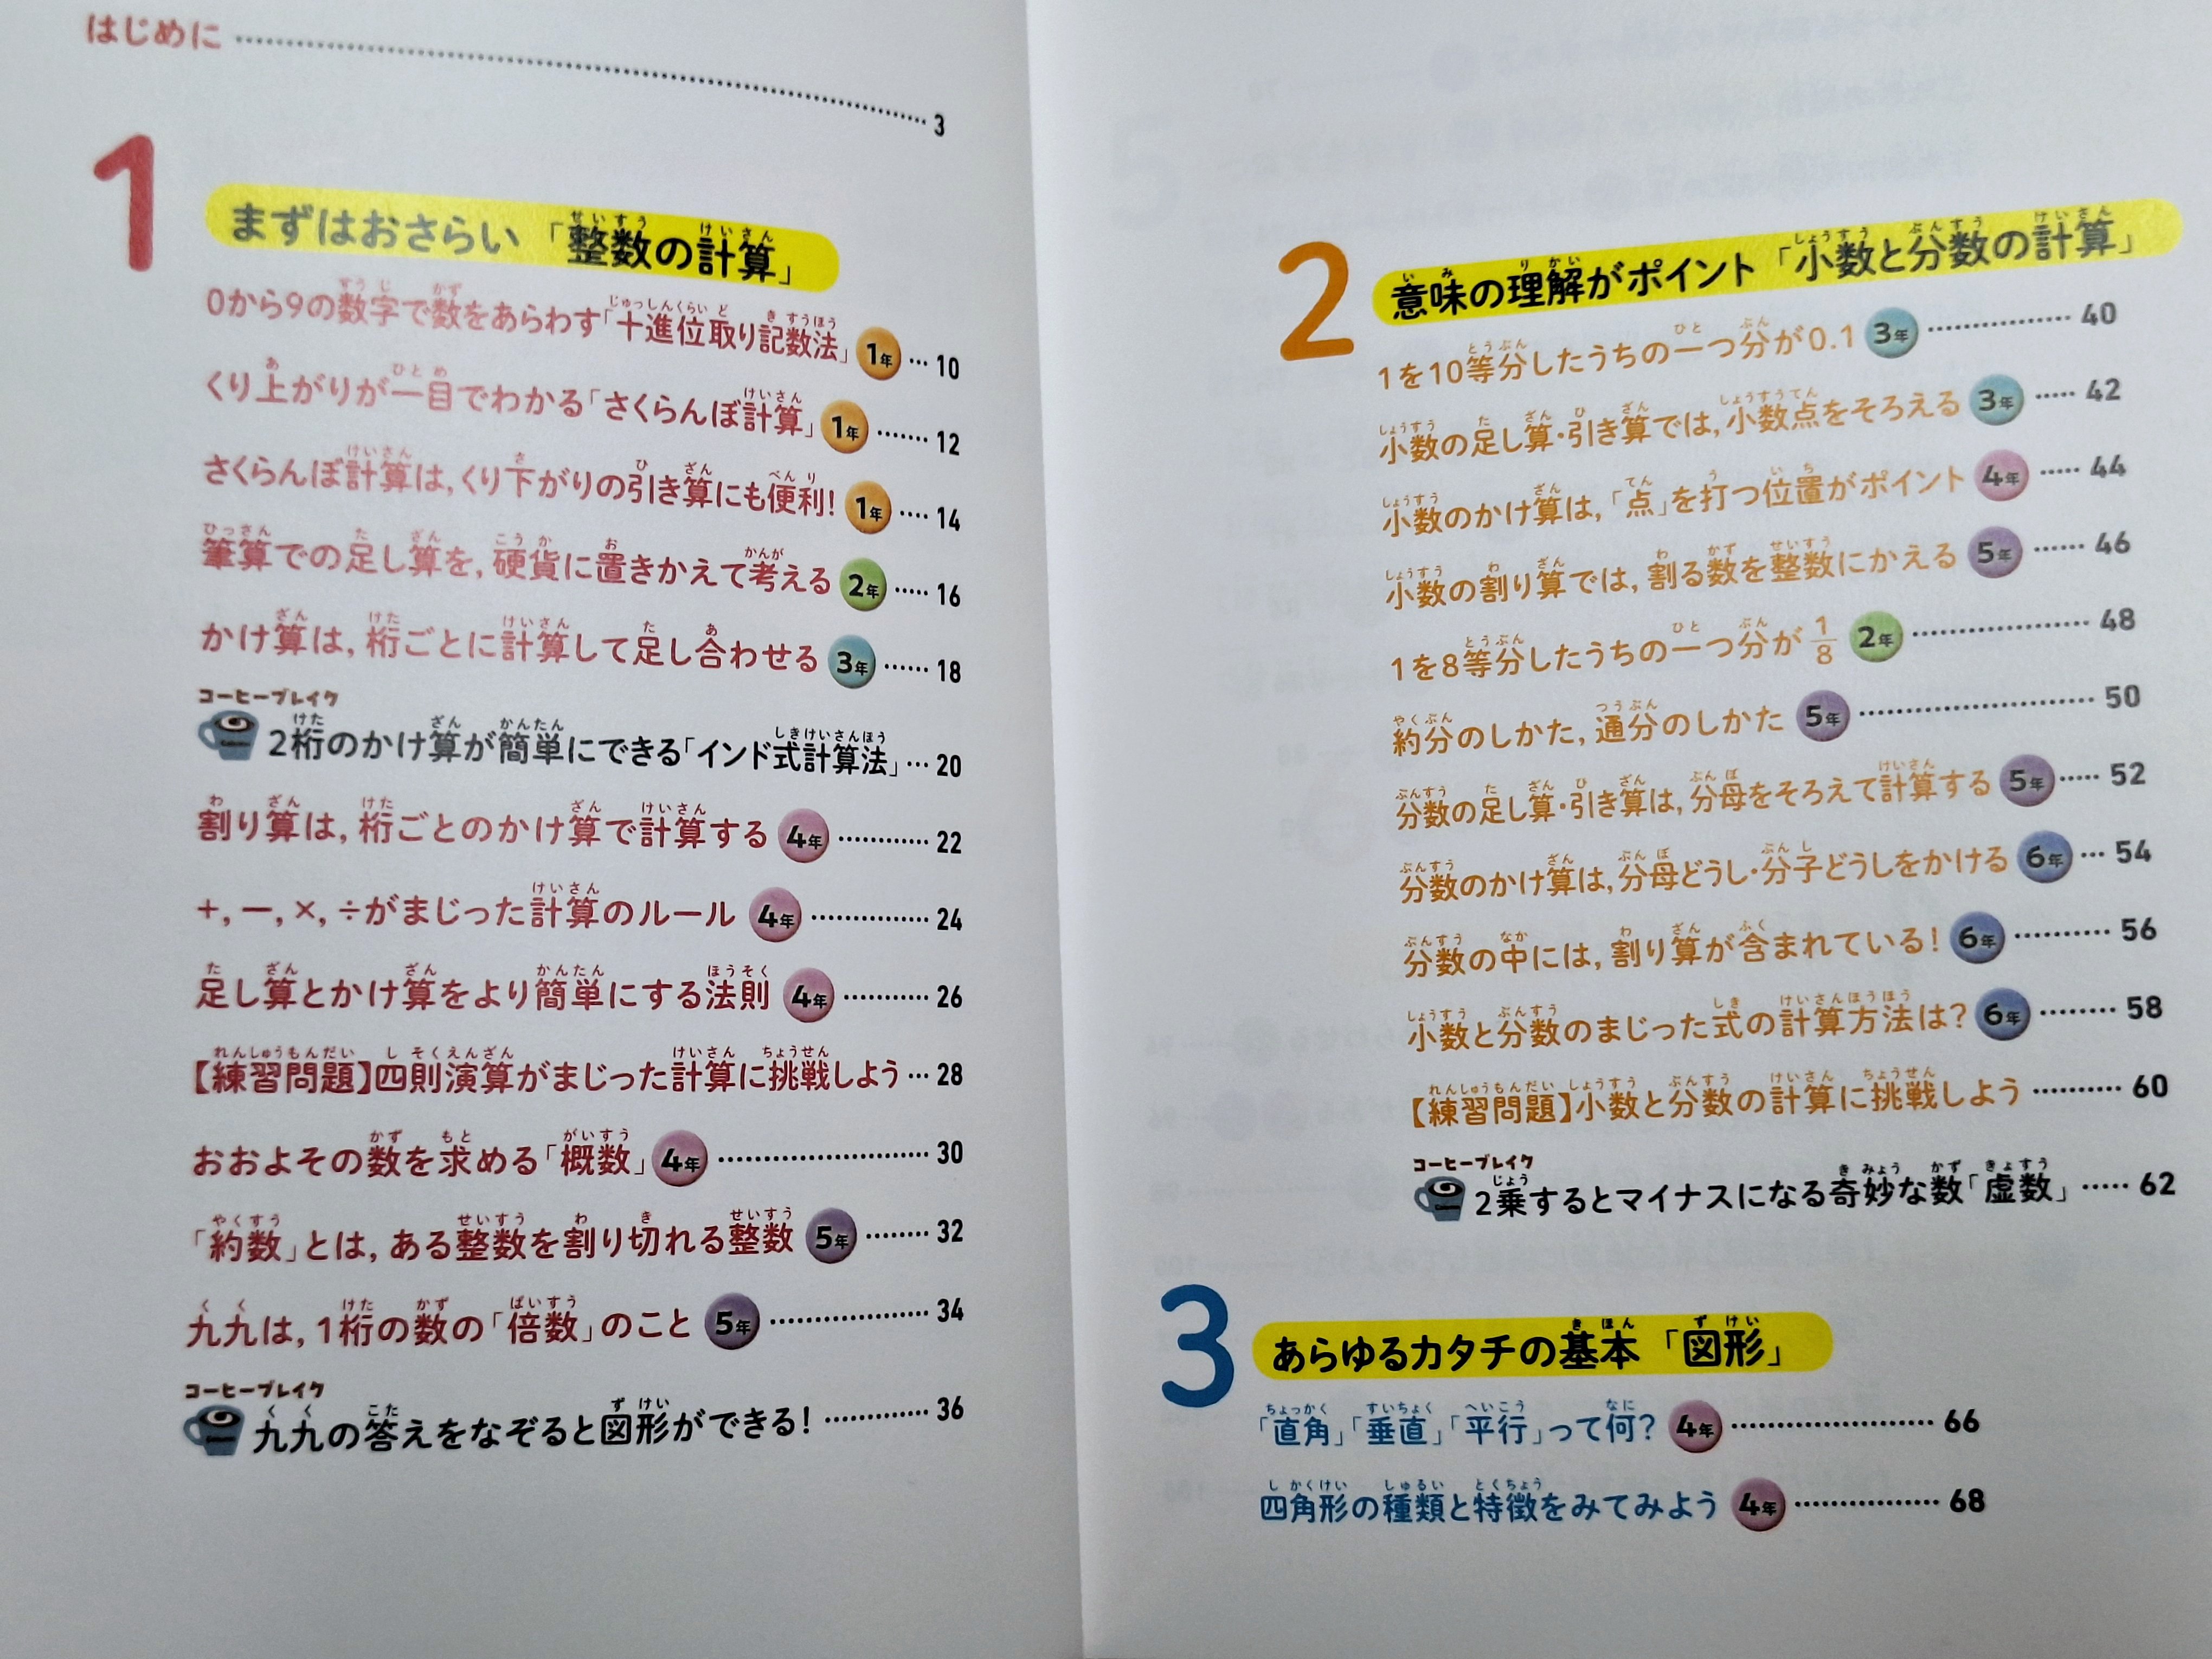 はじめに 3
1
まずはおさらい「整数の計算」
0から9の数字で数をあらわす「十進位取り記数法」 1年 … 10
くり上がりが一目でわかる「さくらんぼ計算」 1年 … 12
さくらんぼ計算は,くり下がりの引き算にも便利! 1年 … 14
筆算での足し算を,硬貨に置きかえて考える 2年 … 16
かけ算は,桁ごとに計算して足し合わせる 3年 … 18
コーヒーブレイク
2桁のかけ算が簡単にできる「インド式計算法」 … 20
割り算は,桁ごとのかけ算で計算する 4年 … 22
+,−,×,÷がまじった計算のルール 4年 … 24
足し算とかけ算をより簡単にする法則 4年 … 26
【練習問題】四則演算がまじった計算に挑戦しよう … 28
おおよその数を求める「概数」 4年 … 30
「約数」とは,ある整数を割り切れる整数 5年 … 32
九九は,1桁の数の「倍数」のこと 5年 … 34
コーヒーブレイク
九九の答えをなぞると図形ができる! … 36
2
意味の理解がポイント「小数と分数の計算」
1を10等分したうちの一つ分が0.1 3年 … 40
小数の足し算・引き算では,小数点をそろえる 3年 … 42
小数のかけ算は,「点」を打つ位置がポイント 4年 … 44
小数の割り算では,割る数を整数にかえる 5年 … 46
1を8等分したうちの一つ分が1/8 2年 … 48
約分のしかた,通分のしかた 5年 … 50
分数の足し算・引き算は,分母をそろえて計算する 5年 … 52
分数のかけ算は,分母どうし・分子どうしをかける 6年 … 54
分数の中には,割り算が含まれている! 6年 … 56
小数と分数のまじった式の計算方法は? 6年 … 58
【練習問題】小数と分数の計算に挑戦しよう … 60
コーヒーブレイク
2乗するとマイナスになる奇妙な数「虚数」 … 62
3
あらゆるカタチの基本「図形」
「直角」「垂直」「平行」って何? 4年 … 66
四角形の種類と特徴をみてみよう 4年 … 68